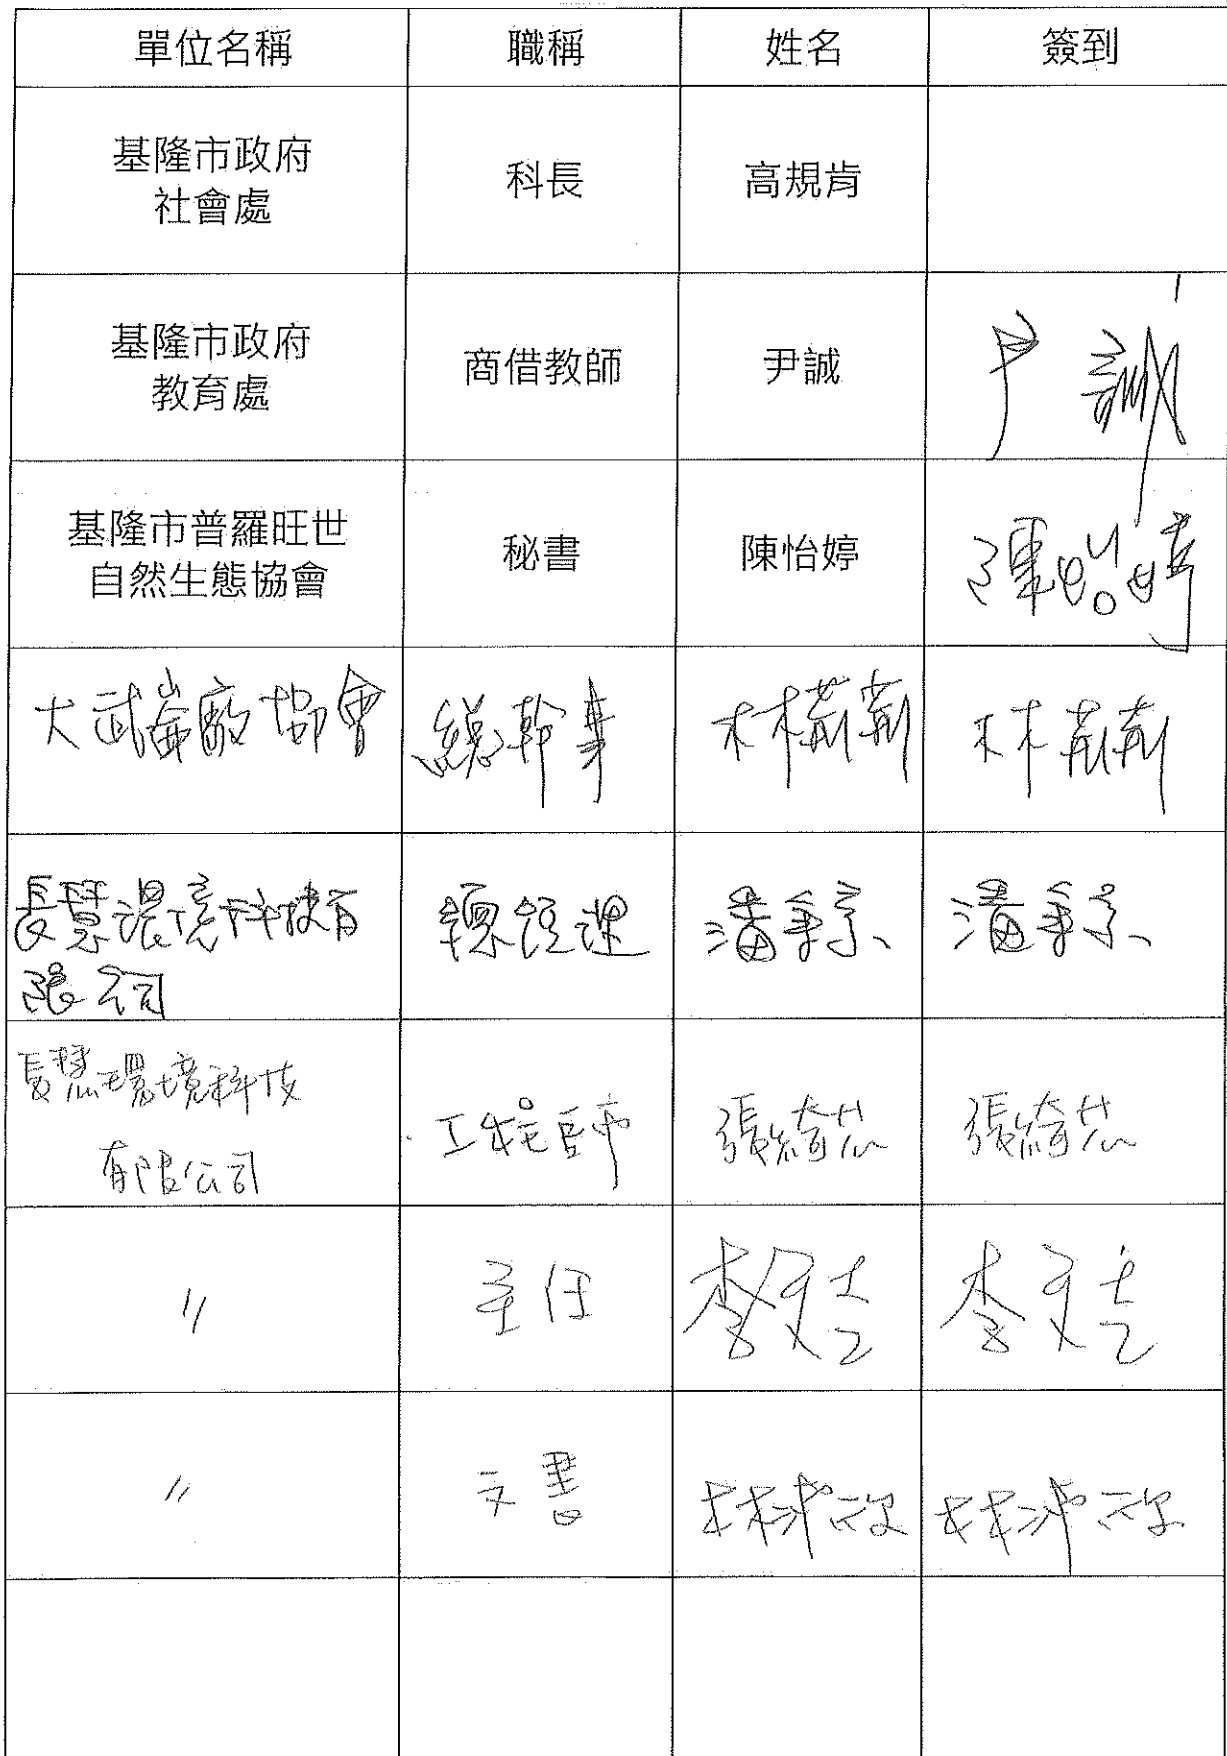 單位名稱 職稱 姓名 簽到
基隆市政府
社會處
科長 高規肯
基隆市政府
教育處
商借教師 尹誠 尹誠
基隆市普羅旺世
自然生態協會
秘書 陳怡婷 陳怡婷
大武崙廠協會 總幹事 林莉莉 林莉莉
長慧環境科技有
限公司
總經理
長慧環境科技
有限公司
工程師 張綺芯 張綺芯
〃 主任
〃 文書